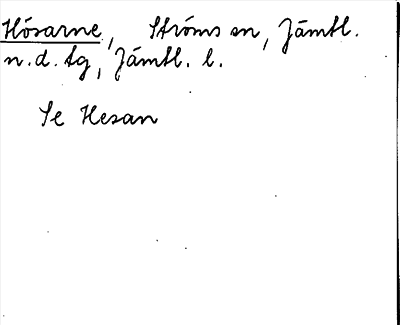 Hósarne, Ströms sn, Jämtl.
n. d. tg, Jämtl. l.
Se Hesan